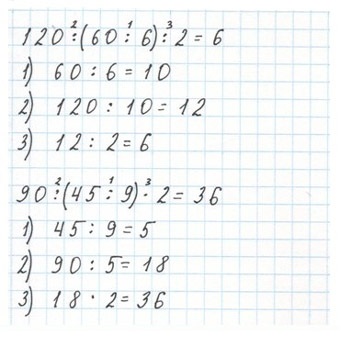 120 :² (60 :¹ 6) :³ 2 = 6
1) 60 : 6 = 10
2) 120 : 10 = 12
3) 12 : 2 = 6
90 :² (45 :¹ 9) ·³ 2 = 36
1) 45 : 9 = 5
2) 90 : 5 = 18
3) 18 · 2 = 36